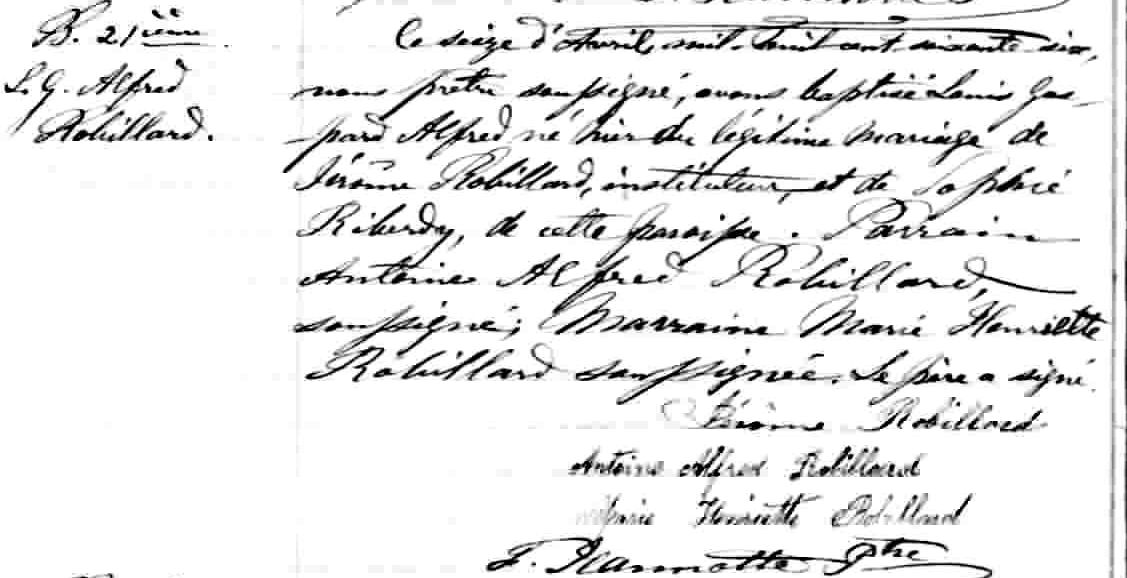 B. 21ième
L. G. Alfred
Robillard.
Ce seize d'Avril, mil-huit cent soixante six,
nous prêtre soussigné, avons baptisé Louis Gas-
-pard Alfred né hier du légitime mariage de
Jérôme Robillard, instituteur, et de Sophie
Riberdy, de cette paroisse. Parrain
Antoine Alfred Robillard,
soussigné; Marraine Marie Henriette
Robillard soussignée. Le père a signé.
Jérôme Robillard
Antoine Alfred Robillard
Marie Henriette Robillard
F. Jeannotte Ptre